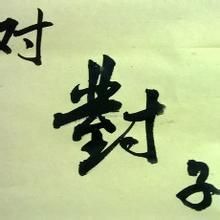 对
對
子